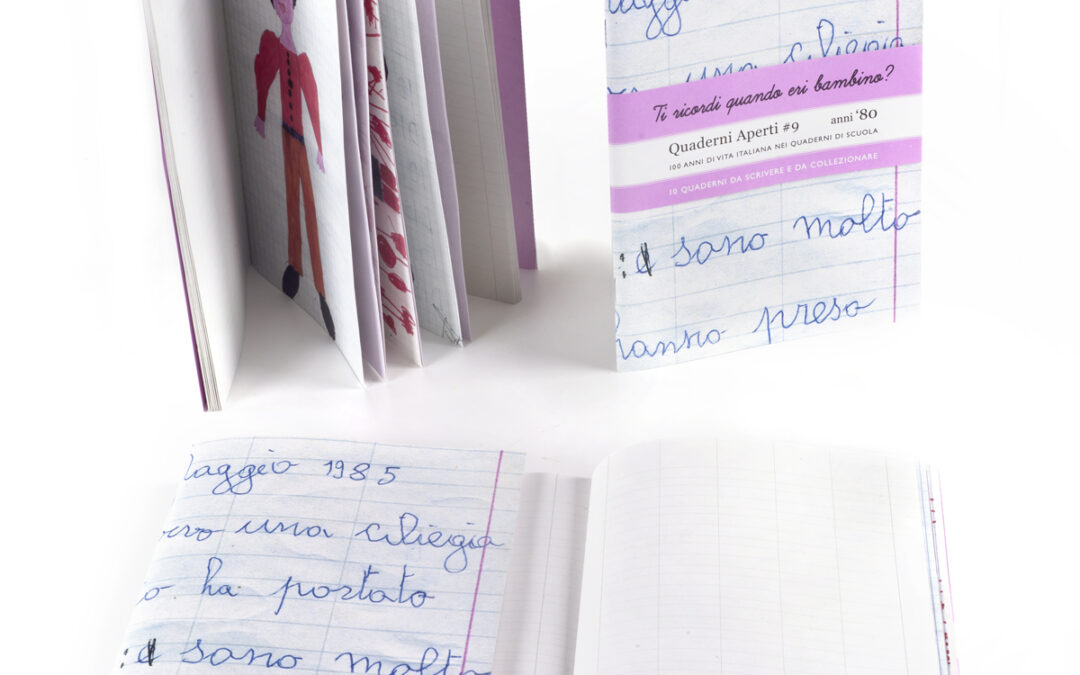 laggio
una ciliegia
Ti ricordi quando eri bambino?
Quaderni Aperti #9 anni ‘80
100 ANNI DI VITA ITALIANA NEI QUADERNI DI SCUOLA
10 QUADERNI DA SCRIVERE E DA COLLEZIONARE
:d sono molto
hanno preso
laggio 1985
ero una ciliegia
o. ha portato
:d sono molto